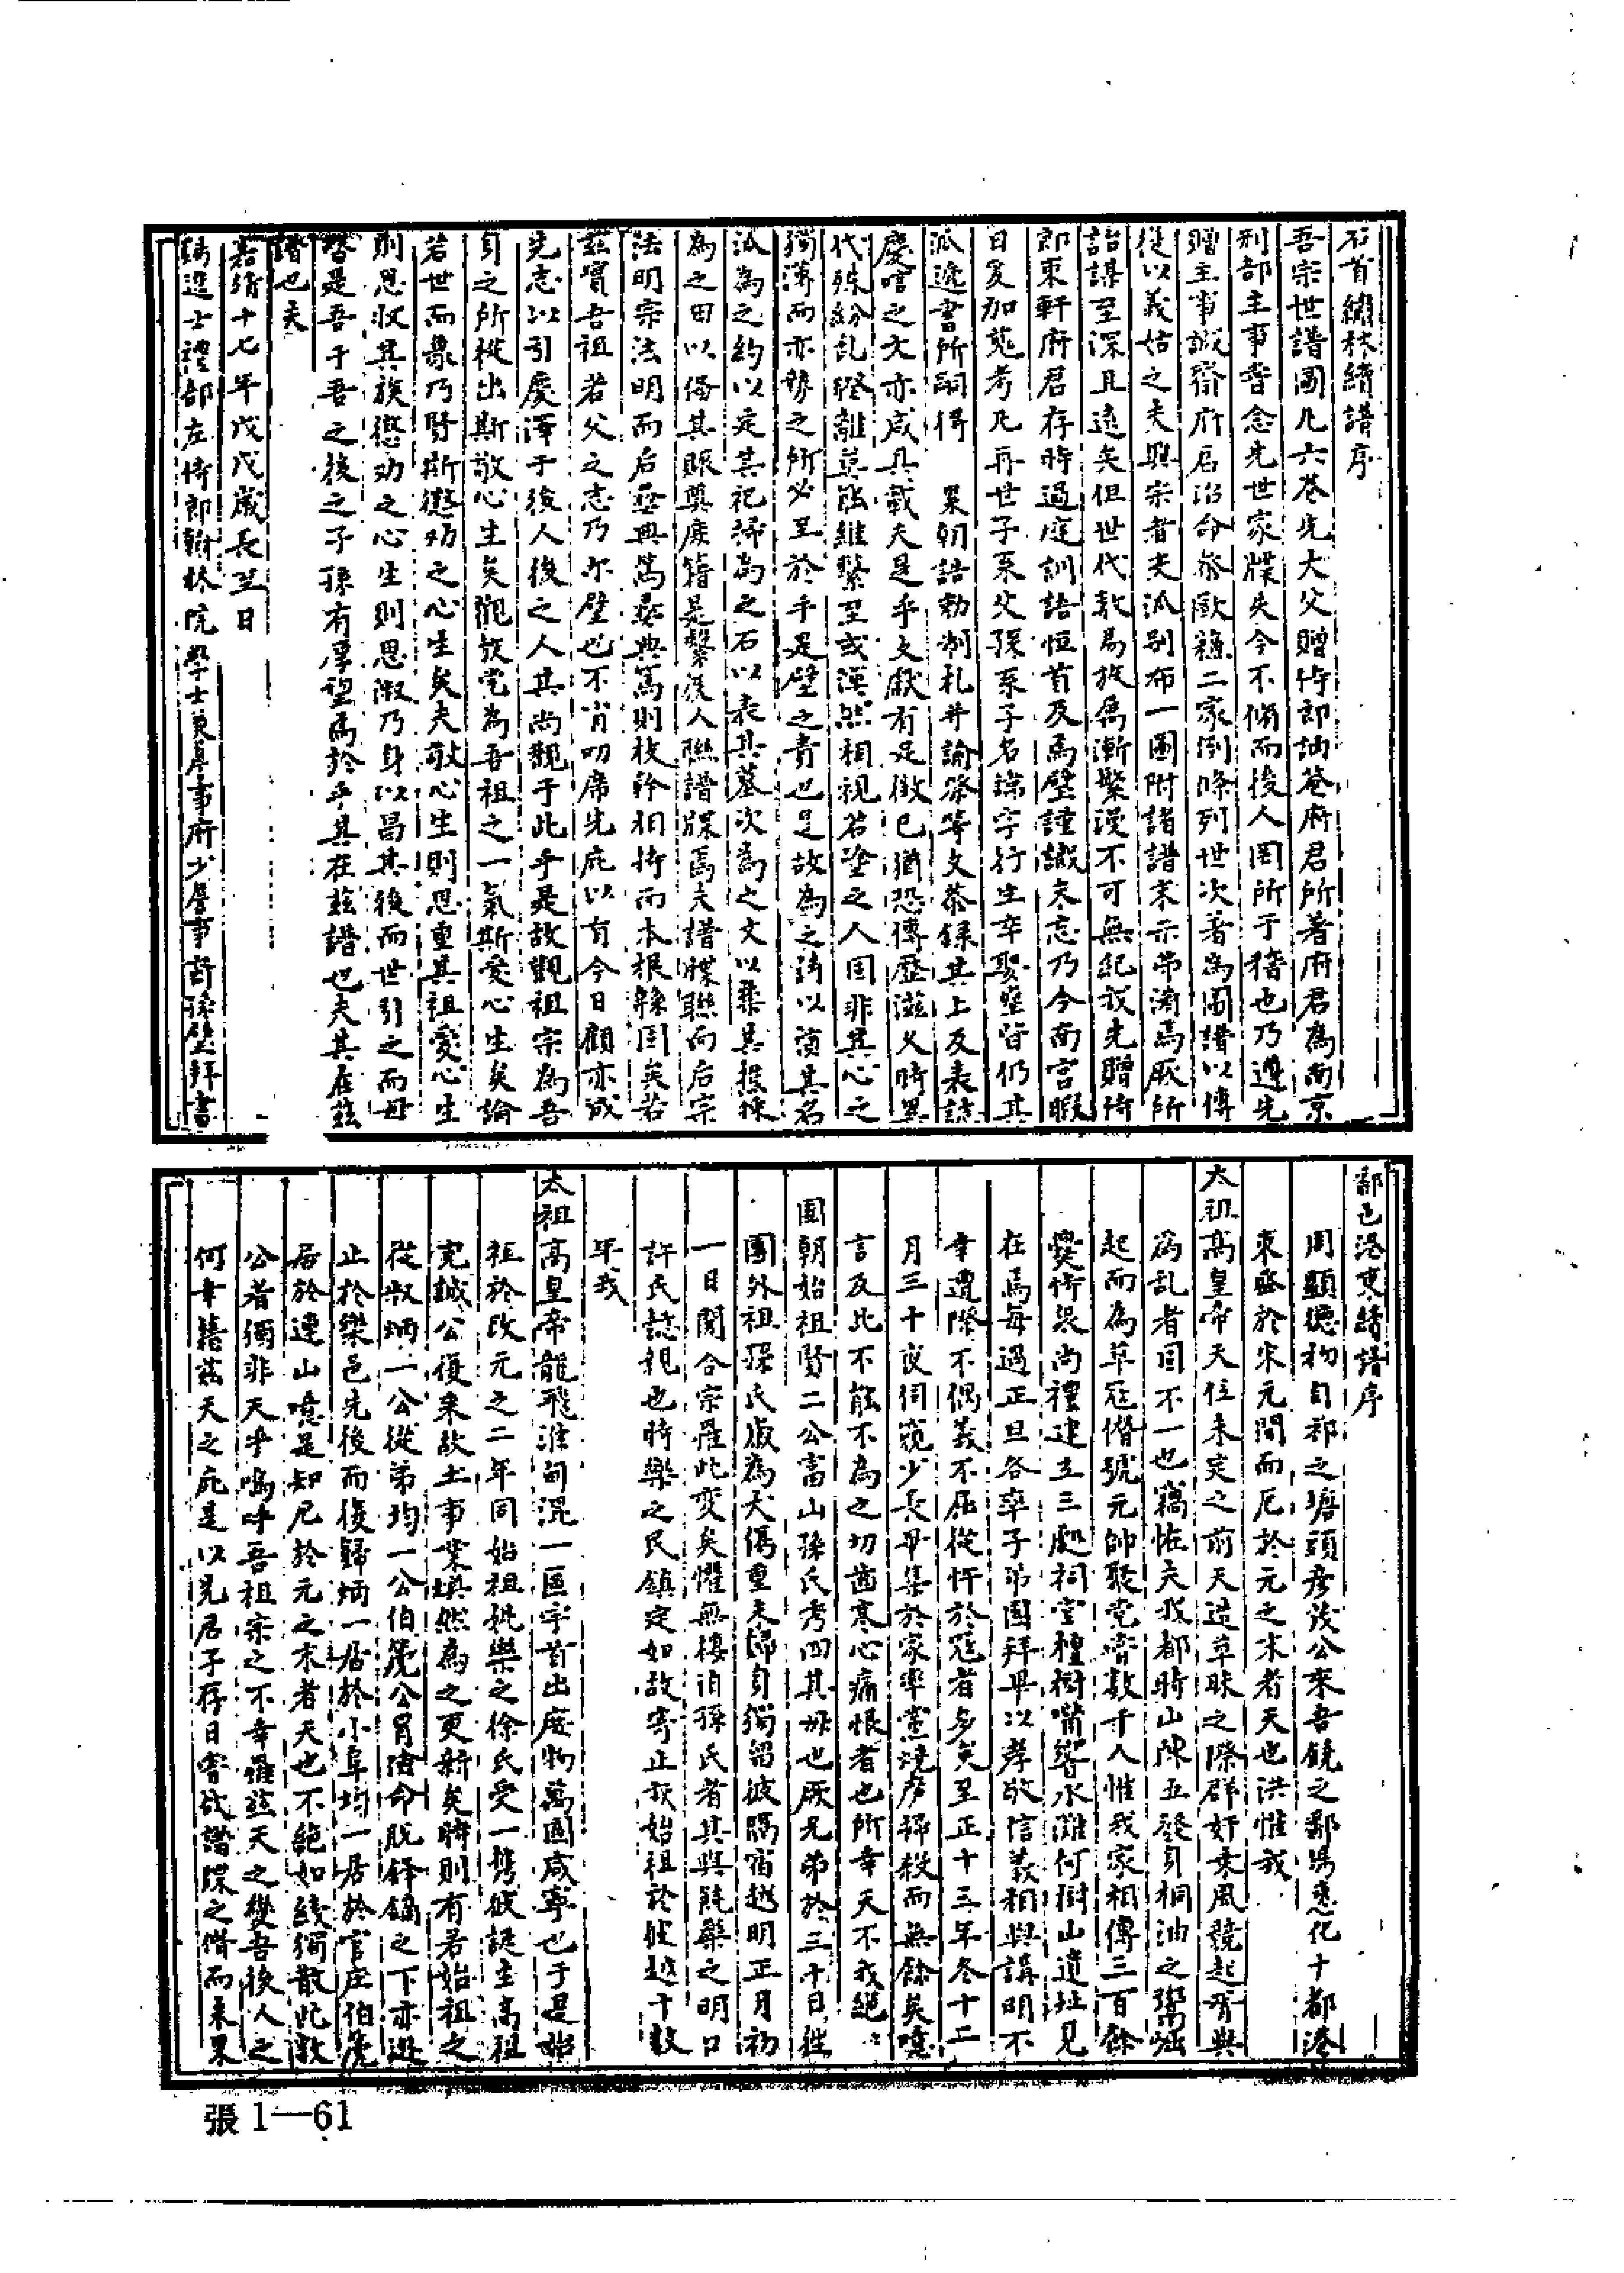 石首繡林續譜序
吾宗世譜圖凡六卷先大父贈侍郎㧏菴府君所著府君為南京
刑部主事嘗念先世家牒失今不脩而後人罔所于稽也乃遵先
贈主事誠齋府君治命叅歐蘓二家例條列世次著為圖譜以傳
從以義姑之夫興宗者夫派别布一圖附諸譜末示弗淆焉厥所
詒謀至深且遠矣但世代敦為族属漸繁漫不可無紀我先贈侍
郎東軒府君存時過庭訓語恒首及焉壁謹識未忘乃今南宫暇
日爰加蒐考凡再世子系父孫系子名諱字行生卒娶塟皆仍其
派遠書所嗣得 累朝誥勅制札并諭祭等文恭錄其上及表誌
慶唁之文亦咸具載夫是乎文獻有足徵已猶恐傳歷滋乂時異
代殊紛乱睽離莫能維繫至或漠然相視若塗之人固非其心之
獨薄而亦勢之所必至於乎是壁之責也是故為之請以演其名
派為之約以定其祀掃為之石以表其墓次為之文以彙其
為之田以俻其賑奠庶籍是繫後人聯譜牒焉夫譜牒聯而后宗
法明宗法明而后彛典篤彛典篤則枝幹相持而本根繇固矣若
兹實吾祖若父之志乃尔壁也不肖叨席先庇以有今日顧亦咸
先志以引慶澤于後人後之人其尚觀于此乎是故觀祖宗為吾
身之所從出斯敬心生矣觀族党為吾祖之一氣斯愛心生矣論
若世而彖乃賢斯懲劝之心生矣夫敬心生則思重其祖愛心生
則思收其族懲劝之心生則思淑乃身以昌其後而世引之而毋
替是吾于吾之後之子孫有厚望焉於乎其在兹譜也夫其在兹
譜也夫
嘉靖十七年戊戌歲長至日
賜進士禮部左侍郎翰林院學士兼詹事府少詹事嗣孫壁拜書
鄱邑港東續譜序
周顯德初自祁之塘頭彦茂公来吾饒之鄱陽惠化十都港
東盛於宋元間而厄於元之末者天也洪惟我
太祖高皇帝天位未定之前天造草昧之際群奸乗風競起胥與
為乱者固不一也竊恠夫我都時山陳五發身桐油之塢崛
起而為草冦僭號元帥聚党嘗数千人惟我家相傳三百餘
爨術裴尚禮建立三處祠堂種樹嘴響水灘何樹山遺址見
在焉每遇正旦各率子弟團拜畢以孝敬信義相與講明不
幸遭際不偶義不屈從忤於冦者多矣至正十三年冬十二
月三十夜伺窺少長毋集於家率党燒虜掃殺而無餘矣噫
言及此不能不為之切齒寒心痛恨者也所幸天不我絕
國朝始祖賢二公富山孫氏考四其母也厥兄弟於三十日徃
團外祖孫氏歲為犬傷重未歸身獨留彼隅宿越明正月初
一日聞合宗罹此変矣懼無棲泊孫氏者其與蓺藥之明口
許氏誌親也時樂之民鎮定如故寄止我始祖於彼越十数
年我
太祖高皇帝龍飛淮甸混一區宇首出庶物萬國咸寧也于是始
祖於改元之二年同始祖妣樂之徐氏受一携彼誕生高祖
克誠公復来故土事業煥然為之更新矣時則有若始祖之
從叔炳一公從弟均一公伯茂公胥隕命脱鋒鏑之下亦遯
止於樂邑先後而復歸炳一居於小阜均一居於官庄伯茂
居於連山噫是知厄於元之末者天也不絕如綫獨散此数
公者獨非天乎嗚呼吾祖宗之不幸罹兹天之變吾後人之
何幸籍兹天之庇是以先君子存日嘗欲譜牒之脩而未果
張1—61